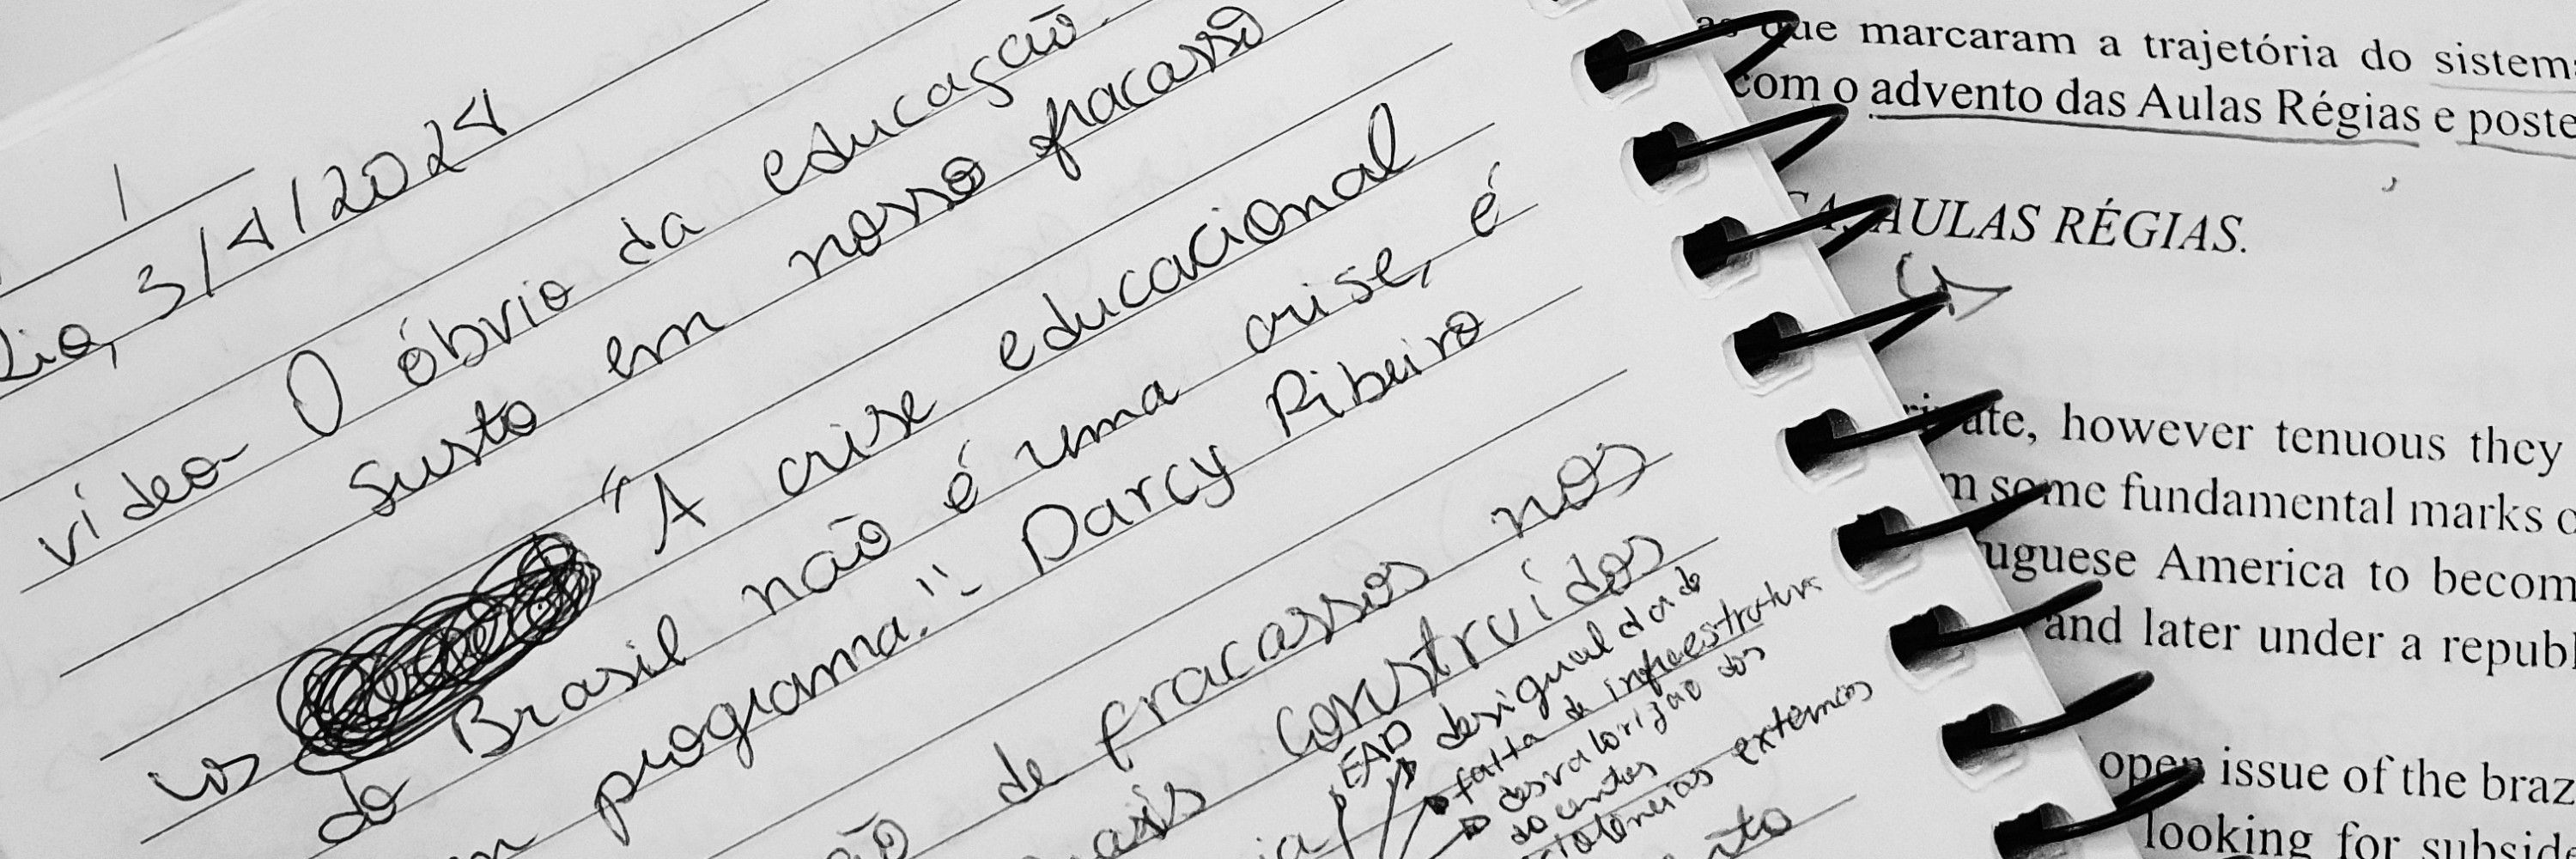 Rio, 3/4/2024
vídeo - O óbvio da educação
susto em nosso fracasso
"A crise educacional
do Brasil não é uma crise, é
programa." - Darcy Ribeiro
de fracassos nos
construídos
EAD desigualdade
falta de infraestrutura
desvalorização dos
docentes
externos
as que marcaram a trajetória do sistem
com o advento das Aulas Régias e poste
CA, AULAS RÉGIAS.
rivate, however tenuous they
m some fundamental marks o
uguese America to becom
and later under a republ
open issue of the braz
looking for subside